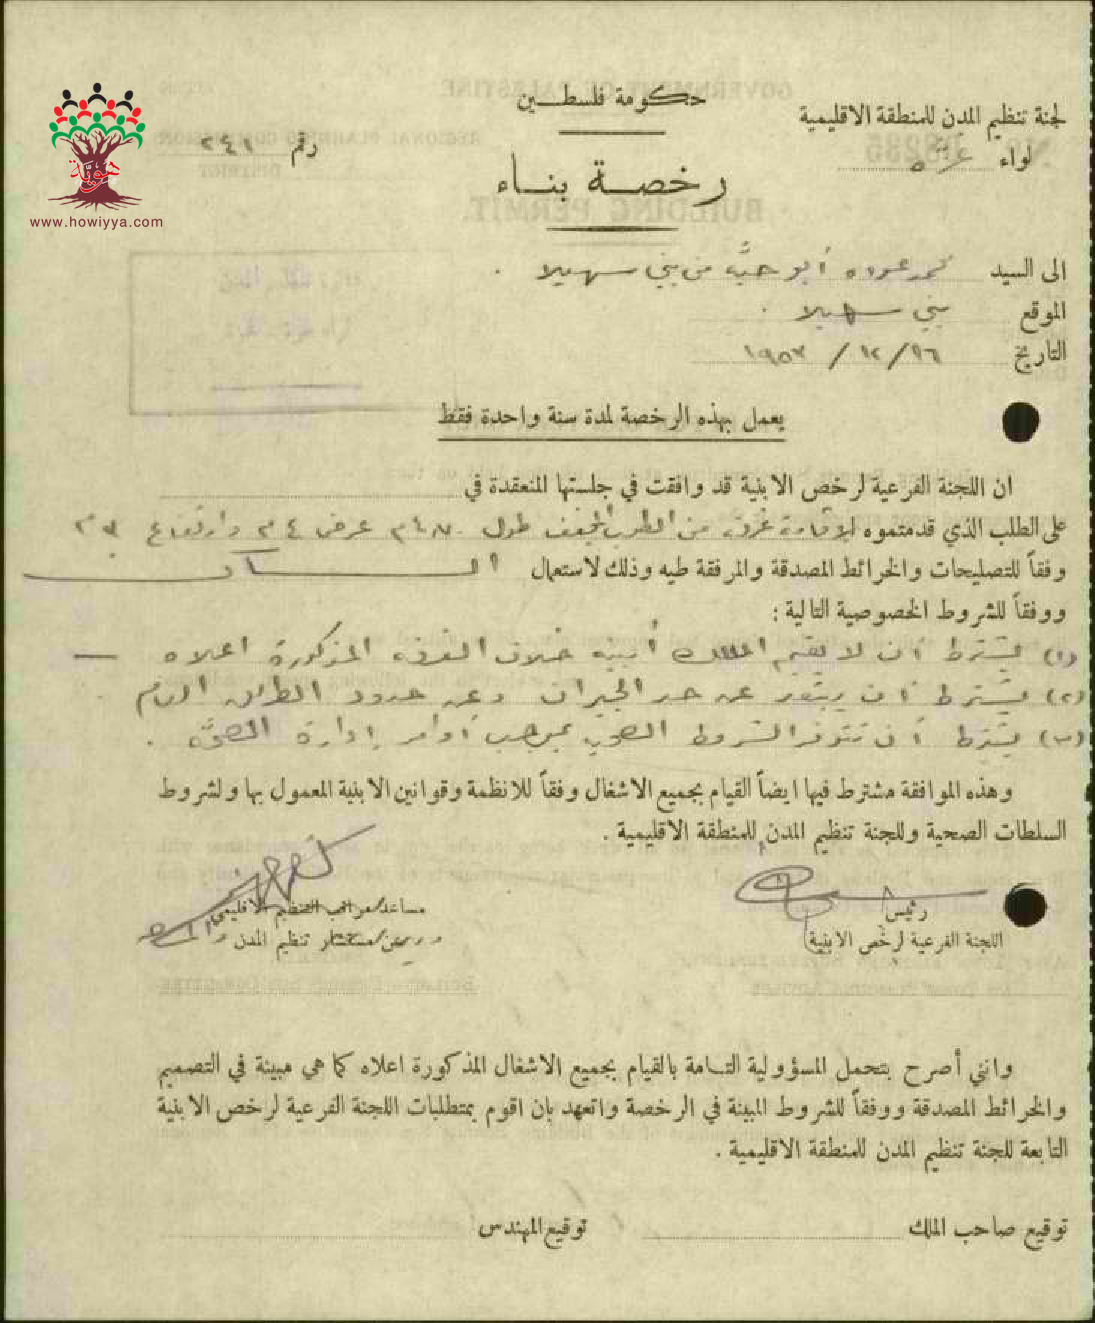 حكومة فلسطين
لجنة تنظيم المدن للمنطقة الاقليمية
لواء غزة
رقم ٢٤١
رخصة بناء
هوية
www.howiyya.com
الى السيد محمد عوده أبو حيه من بني سهيلا .
الموقع بني سهيلا .
التاريخ ١٦/ ١٢/ ١٩٥٣
يعمل بهذه الرخصة لمدة سنة واحدة فقط
ان اللجنة الفرعية لرخص الابنية قد وافقت في جلستها المنعقدة في
على الطلب الذي قدمتموه لاقامة غرفه من الطوب المجفف طول عرض ٤ م وارتفاع ٣ م
وفقاً للتصليحات والخرائط المصدقة والمرفقة طيه وذلك لاستعمال السكن
ووفقاً للشروط الخصوصية التالية :
(١) يشترط أن لا يقيم المالك أبنيه خلاف الغرفه المذكورة اعلاه
(٢) يشترط أن يبتعد عن حد الجيران وعن حدود الطريق العام .
(٣) يشترط أن تتوفر الشروط الصحيه بموجب أوامر إدارة الصحه .
وهذه الموافقة مشترط فيها ايضاً القيام بجميع الاشغال وفقاً للانظمة وقوانين الابنية المعمول بها ولشروط
السلطات الصحية وللجنة تنظيم المدن للمنطقة الاقليمية .
رئيس
اللجنة الفرعية لرخص الابنية
مساعد مراقب التنظيم الاقليمي
تنظيم المدن
وانني أصرح بتحمل المسؤولية التامة بالقيام بجميع الاشغال المذكورة اعلاه كما هي مبينة في التصميم
والخرائط المصدقة ووفقاً للشروط المبينة في الرخصة واتعهد بان اقوم بمتطلبات اللجنة الفرعية لرخص الابنية
التابعة للجنة تنظيم المدن للمنطقة الاقليمية .
توقيع صاحب الملك
توقيع المهندس